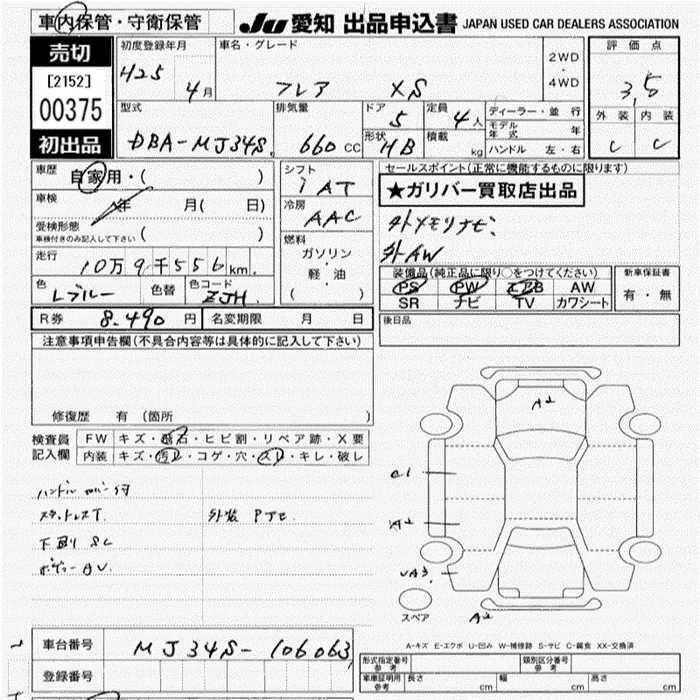 車内保管・守衛保管
JU 愛知 出品申込書 JAPAN USED CAR DEALERS ASSOCIATION
売切
[2152]
00375
初出品
初度登録年月 車名・グレード 2WD・4WD 評価点
425 4月 フレア XS 3.5
型式 排気量 ドア 定員 ディーラー・並行 外装 内装
DBA-MJ34S 660 CC 5 4人 モデル年式 年 C C
形状 積載 ハンドル 左・右
HB kg
車歴 自家用・( ) シフト セールスポイント(正常に機能するものに限ります)
iAT ★ガリバー買取店出品
車検 年 月( 日) 冷房
AAC 外メモリナビ.
受検形態 ( )
車検付きのみ記入して下さい 燃料 外AW
ガソリン・軽・油 ( )
走行 10万9千556km. 装備品(純正品に限り○をつけてください) 新車保証書
PS PW エアB AW 有・無
色 Lブルー 色替 色コード ZJH. SR ナビ TV カワシート
R券 8.490 円 名変期限 月 日 後日品
注意事項申告欄(不具合内容等は具体的に記入して下さい)
修復歴 有 (箇所 )
検査員記入欄 FW キズ・飛石・ヒビ割・リペア跡・X要
内装 キズ・汚レ・コゲ・穴・スレ・キレ・破レ
ハンドルカバー付
スタットレスT. 外装 PTE
下廻り SC
ボディー AV.
A2
C1
A2
UA3.
スペア A2
A-キズ E-エクボ U-凹み W-補修跡 S-サビ C-腐食 XX-交換済
車台番号 MJ34S-106063
登録番号
形式指定番号 参考 類別区分番号 参考
車庫証明用 参考 長さ cm 幅 cm 高さ cm